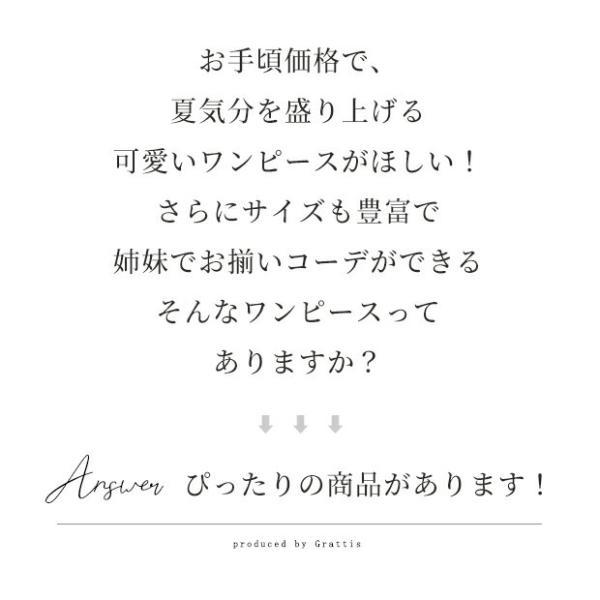 お手頃価格で、
夏気分を盛り上げる
可愛いワンピースがほしい！
さらにサイズも豊富で
姉妹でお揃いコーデができる
そんなワンピースって
ありますか？
Answer ぴったりの商品があります！
produced by Grattis